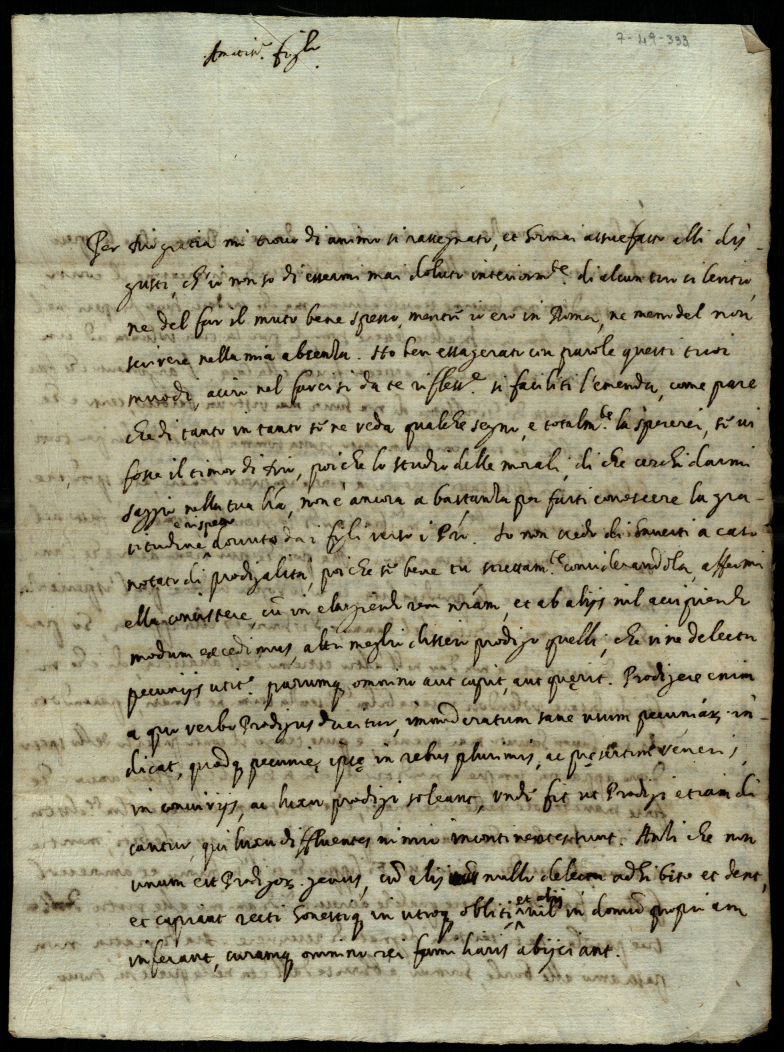 7-49-333
Amatiss.ᵒ figlio
Per Dio gratia mi trovo di animo si rassegnato, et hormai assuefatto alli dis-
gusti, ch'io non so di essermi mai doluto interiorm.te di alcun tuo silentio,
ne del far il muto bene spesso, mentre io ero in Roma, ne meno del non
scrivere nella mia absenza. Ho ben essagerato con parole questi tuoi
modi, acciò nel farcisi da te rifless.e si faciliti l'emenda, come pare
che di tanto in tanto se ne veda qualche segno, e totalm.te la sperarei, se vi
fosse il timor di Dio, poiche lo studio delle morali, di che cerchi darmi
saggio nella tua lra, non è ancora a bastanza per farti conoscere la gra-
titudine, e rispetto dovuto da i figli verso i Pri. Io non credo di haverti a caso
notato di prodigalità, poiche se bene tu strettam.te considerandola, affermi
ella consistere, cu in elargiendo rem nram, et ab alijs nil accipiendo
modum excedimus, altri meglio dissero prodigo quello, che sine delectu
pecunijs utit.r parumq omnino aut capit, aut quęrit. Prodigere enim
a quo verbo Prodigus ducitur, immoderatum sane usum pecuniar in-
dicat, quodq pecunię ipsę in rebus plurimis, ac pręsertim veneris,
in convivijs, ac luxu prodigi soleant, unde fit ut Prodigi etiam di
cantur, qui luxu diffluentes nimio incontinentes sunt. Anzi che non
unum est Prodigor genus, cu alij nullo delectu adhibito et dent,
et capiant recti honestiq in utroq obliti, et alij nil in domu propriam
inferant, curamq omnino rei familiaris abijciant.